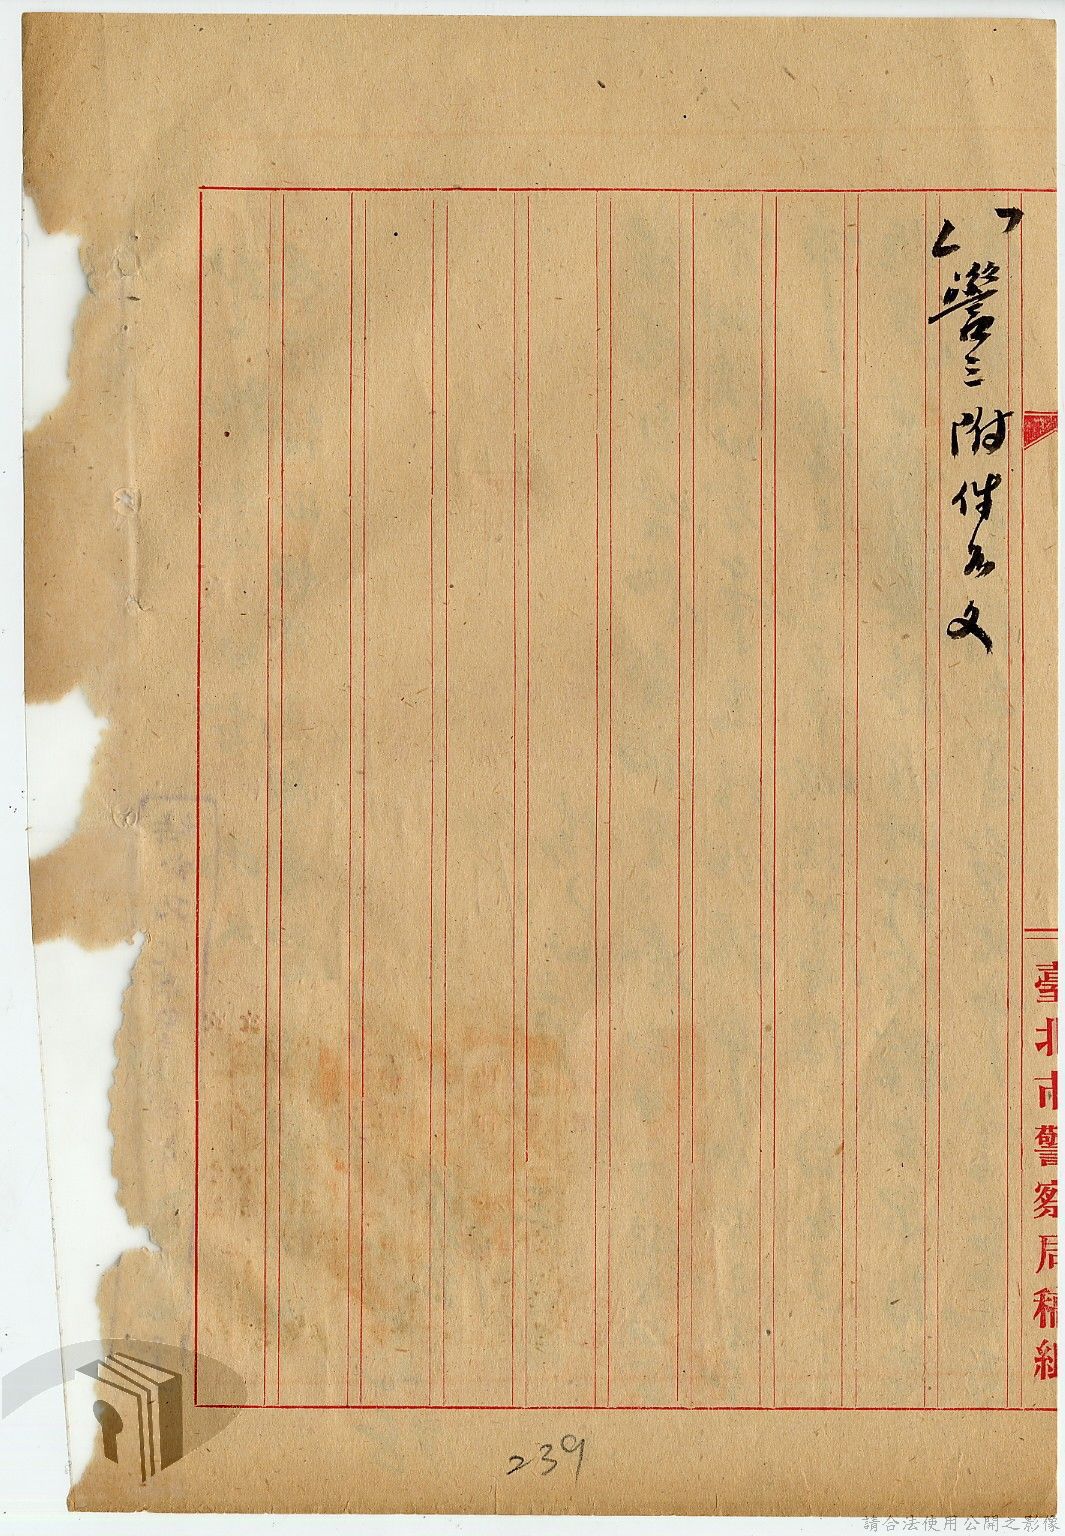 警三附件名文
臺北市警察局稿紙
239
請合法使用公開之影像